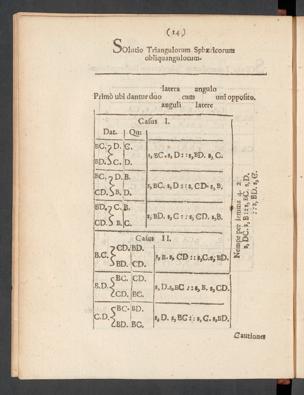 (14)
SOlutio Triangulorum Sphæricorum
obliquangulorum.
latera angulo
Primò ubi dantur duo cum uni opposito.
anguli latere
Casus I.
Dat. Qui
BC. D. C.
BD. C. D.
s, BC. s, D :: s, BD. s, C.
BC. D. B.
CD. B. D.
s, BC. s, D :: s, CD. s, B.
BD. C. B.
CD. B. C.
s, BD. s, C :: s, CD. s, B.
Casus II.
B.C. CD. BD.
BD. CD.
s, B. s, CD :: s, C. s, BD.
B.D. BC. CD.
CD. BC.
s, D. s, BC :: s, B. s, CD.
C.D. BC. BD.
BD. BC.
s, D. s, BC :: s, C. s, BD.
Nempe per lemma 4. 2.
s, DC. s, B :: s, BC. s, D.
:: s, BD. s, C.
Cautiones